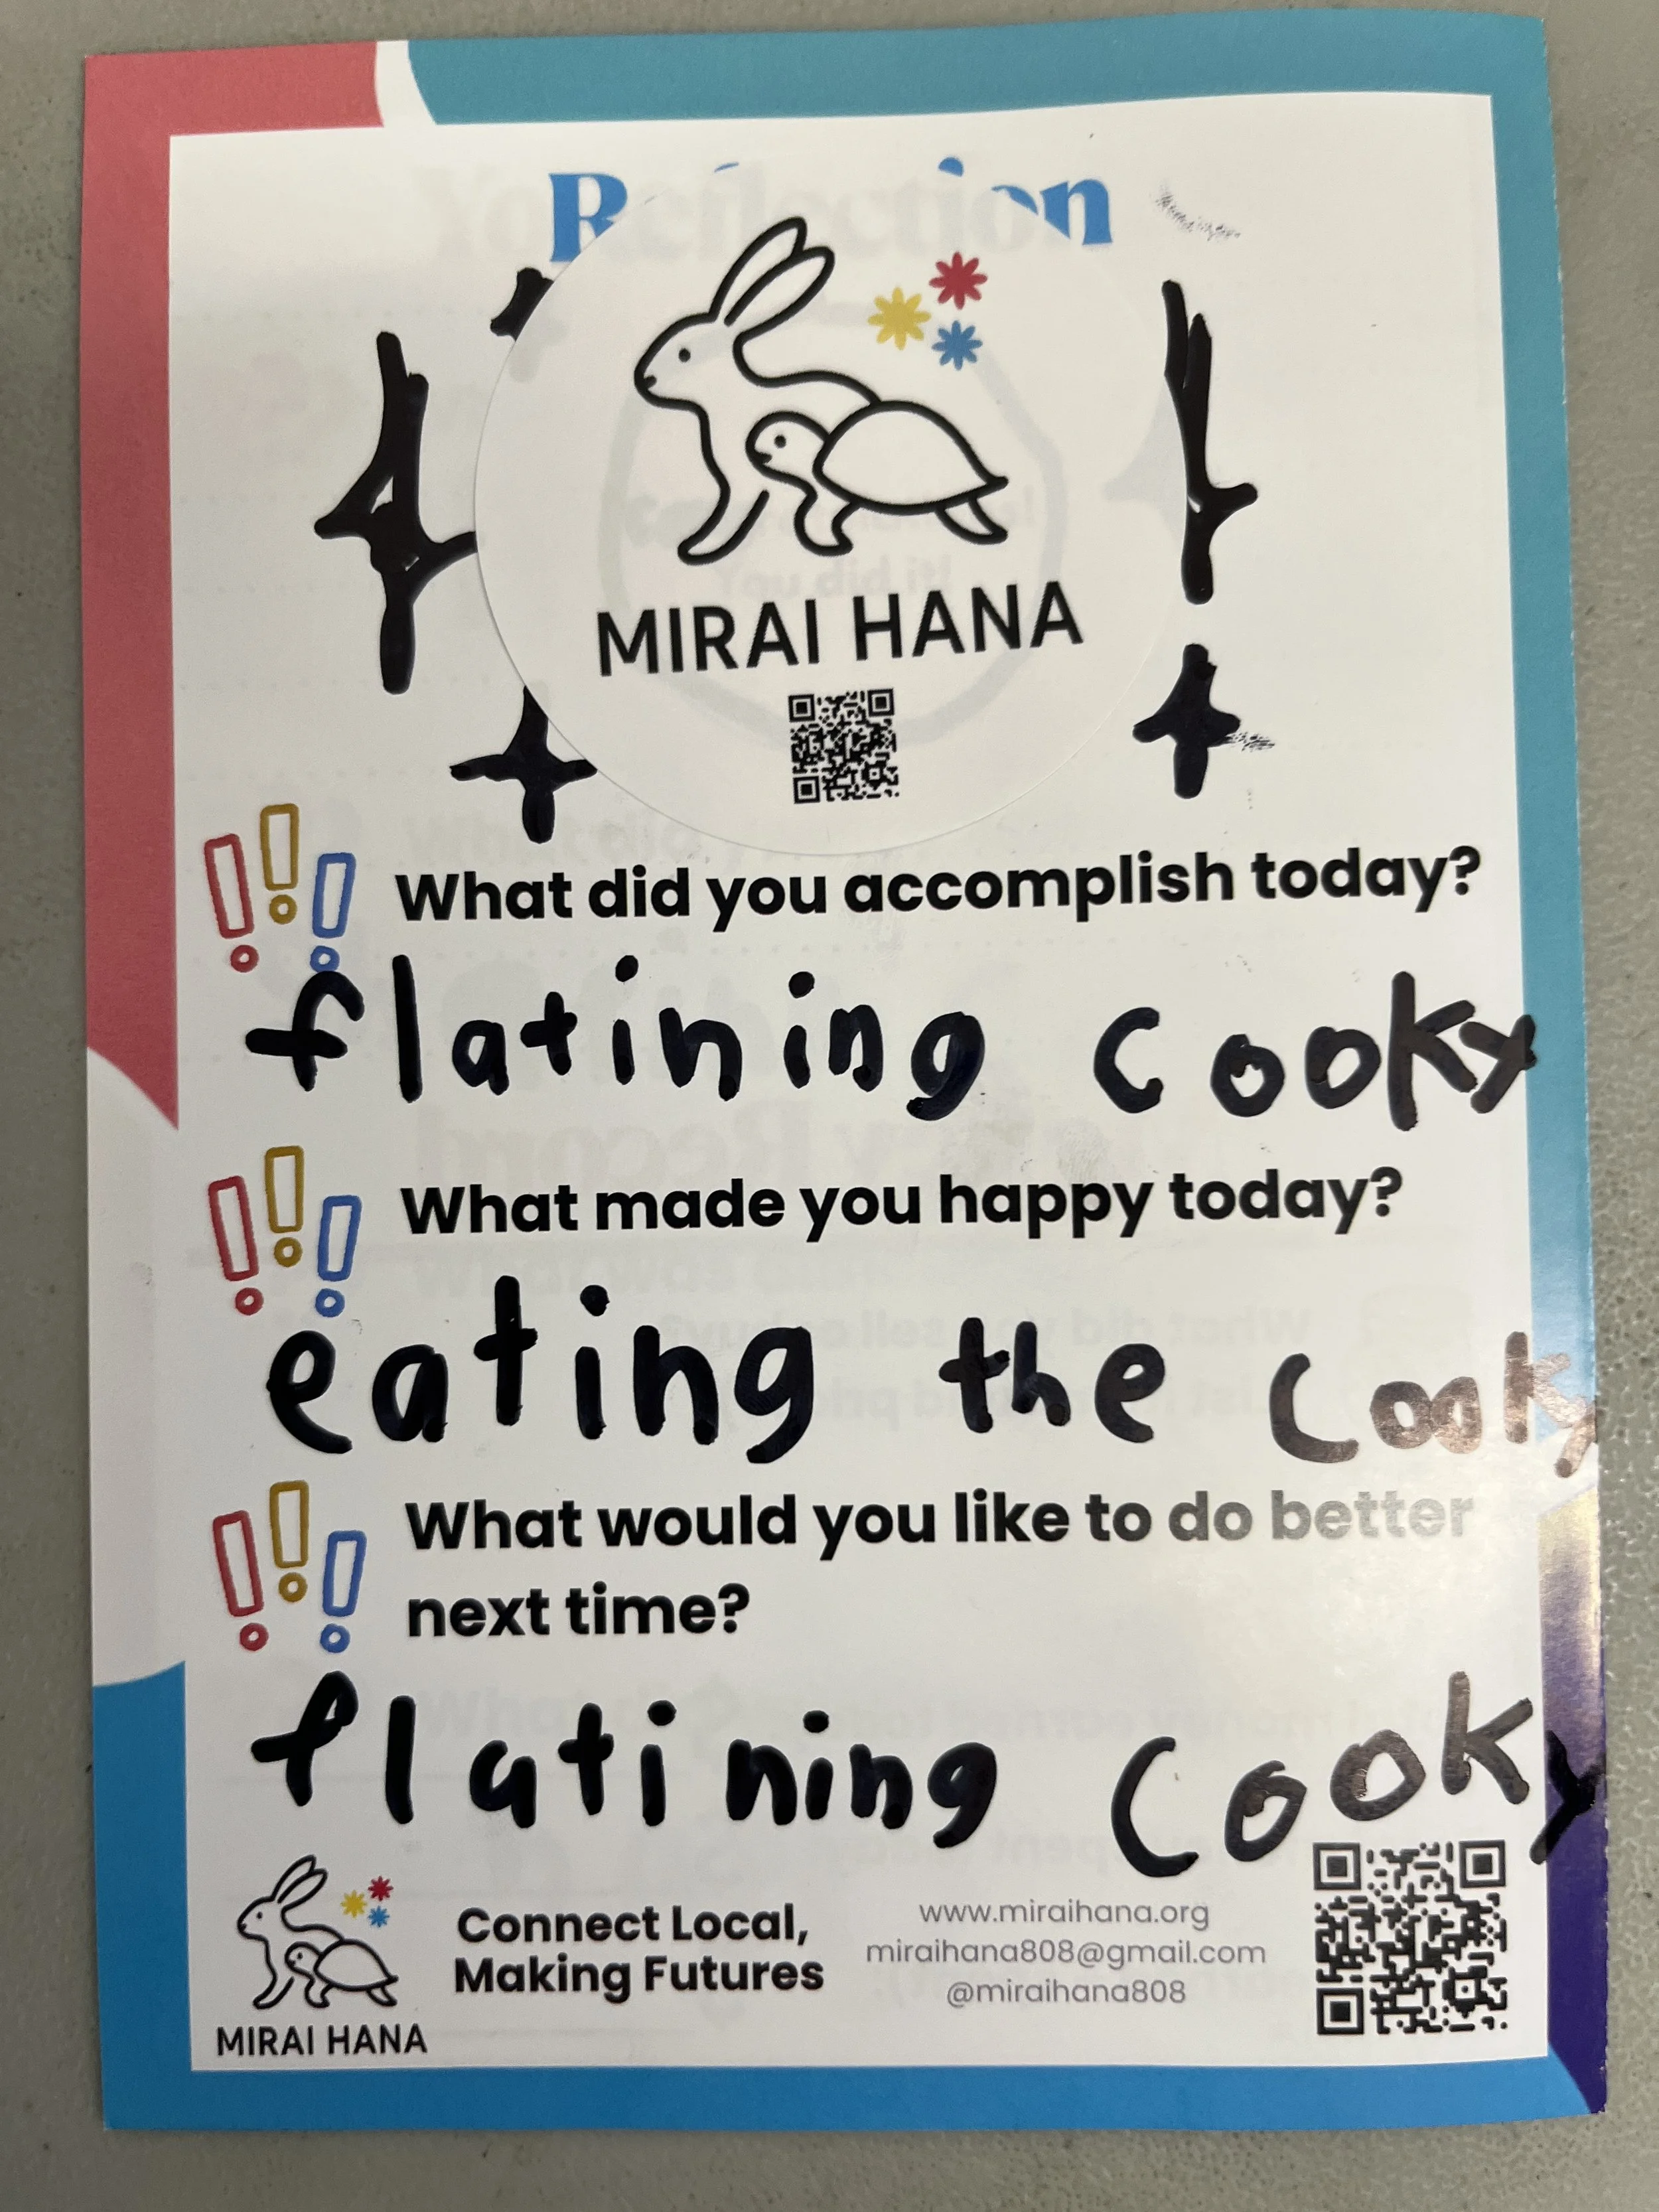 Reflection
MIRAI HANA
What did you accomplish today?
flatining cooky
What made you happy today?
eating the cooky
What would you like to do better
next time?
flatining cooky
Connect Local,
Making Futures
www.miraihana.org
miraihana808@gmail.com
@miraihana808
MIRAI HANA